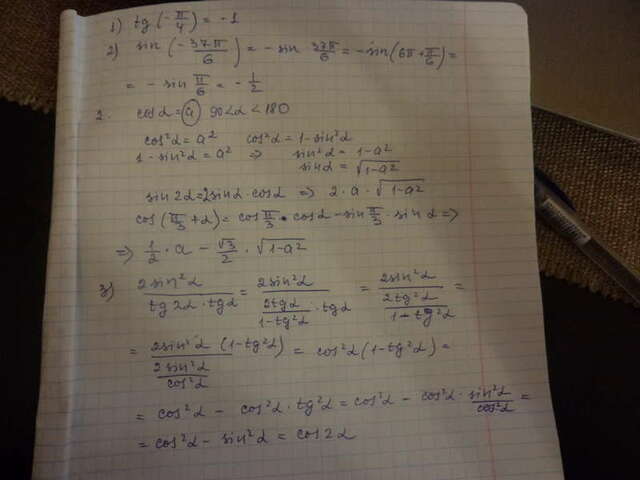 1) tg(-π/4) = -1
2) sin(-37π/6) = -sin 37π/6 = -sin(6π+π/6) =
= -sin π/6 = -1/2
2. cosα = a 90<α<180
cos²α = a² cos²α = 1-sin²α
1-sin²α = a² => sin²α = 1-a²
sinα = √(1-a²)
sin2α = 2sinα·cosα => 2·a·√(1-a²)
cos(π/3+α) = cos π/3 · cosα - sin π/3 · sinα =>
=> 1/2 · a - √3/2 · √(1-a²)
3) 2sin²α/(tg2α·tgα) = 2sin²α/(2tgα/(1-tg²α)·tgα) = 2sin²α/(2tg²α/(1-tg²α)) =
= 2sin²α(1-tg²α)/(2sin²α/cos²α) = cos²α(1-tg²α) =
= cos²α - cos²α·tg²α = cos²α - cos²α·sin²α/cos²α =
= cos²α - sin²α = cos2α